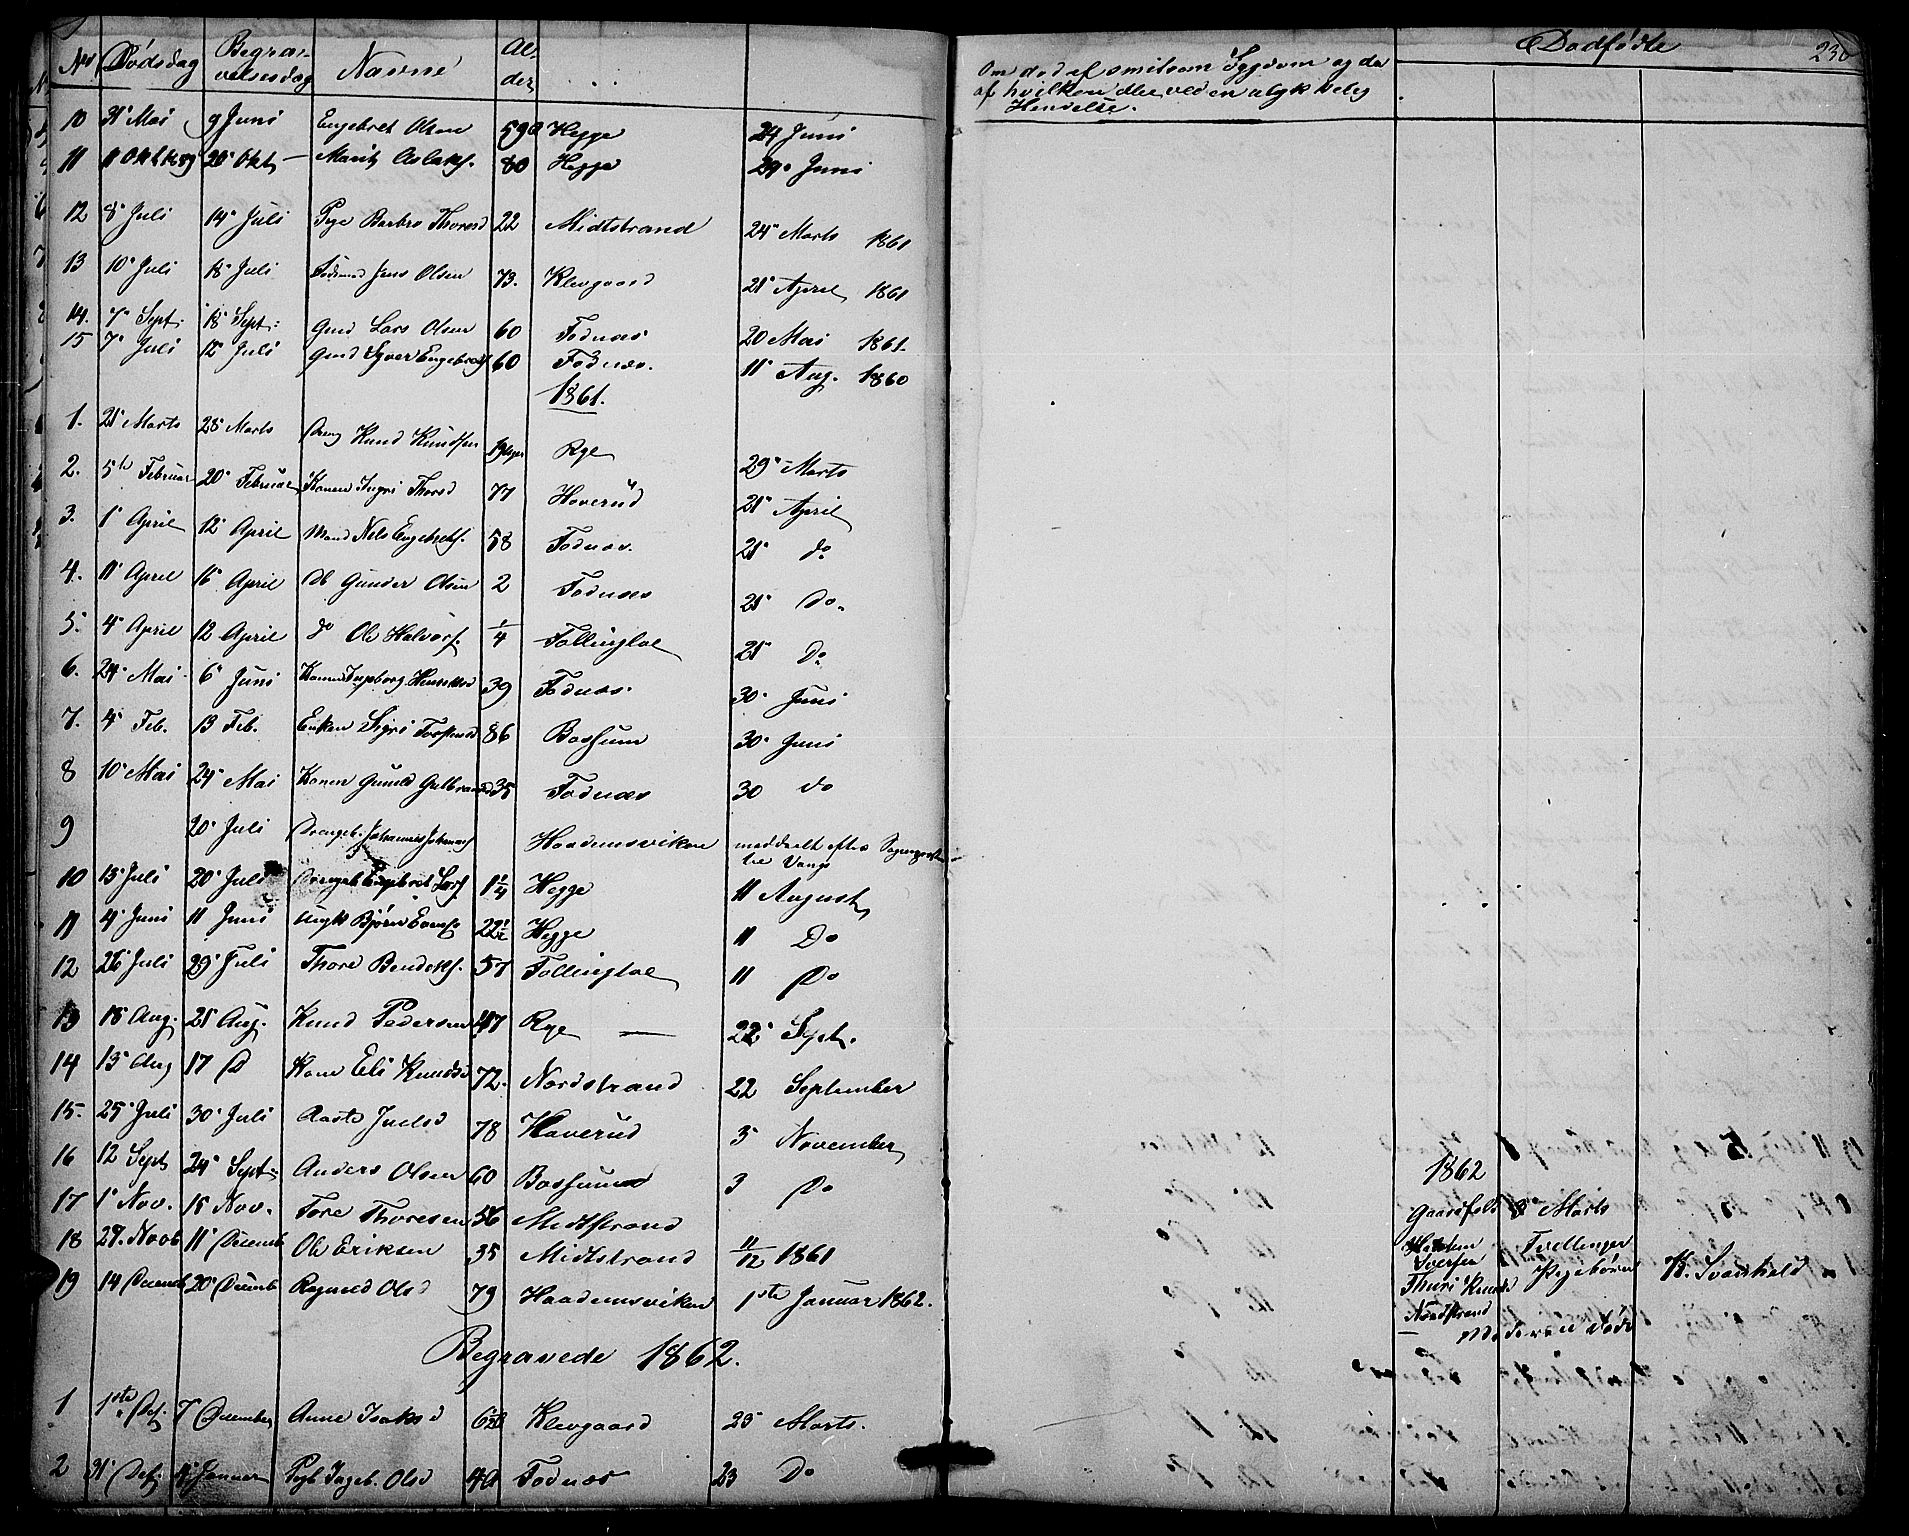 No Dødsdag Begra- Navne Al-
velsesdag der
10 31 Mai 9 Juni Engebret Olsen 59 Hegge 24 Juni
11 11 Oktbrg 20 Okt Marit Aslaks. 80 Hegge 29 Juni
12 8 Juli 14 Juli Pge Barbro Thoresd 22 Midtstrand 24 Marts 1861
13 10 Juli 18 Juli Jens Olsen 73. Klevgaard 21 April 1861
14. 7 Sept. 18 Sept: Gmd Lars Olsen 60 Fodnæs 20 Mai 1861
15 7 Juli 12 Juli Gmd Syver Engebrets 60 Fodnæs. 11 Aug. 1860
1861.
1. 21 Marts 28 Marts Dreng Knud Knudsen Rye 29 Marts
2. 5te Februar 20 Februar Konen Ingri Thorsd 77 Haverud 21 April
3. 1 April 12 April Mand Nels Engebrets. 58 Fodnæs. 21 do
4. 11 April 16 April Db Gunder Olsen 2 Fodnæs 21 Do.
5. 4 April 12 April do Ole Halvors. 1/4 Follingloe 21 Do
6. 24 Mai 6 Juni Konen Ingeborg Henriksd 39 Fodnæs. 30 Juni
7. 4 Feb. 13 Feb. Enken Sigri Torstensd 86 Bossum 30 Juni
8 10 Mai 24 Mai Konen Gunild Gulbransd 35 Fodnæs 30 do
9 20 Juli Drengeb. Johannes Johannes Haademsviken meddeelt efter Sognepræsten
til Vang
10 13 Juli 20 Juli Drengeb Engebret Lars. 1 1/4 Hegge 11 August
11 4 Juni 11 Juni Ungk Bjørn Evens. 22 1/2 Hegge 11 Do
12 26 Juli 29 Juli Thore Bendiks. 57 Follingloe 11 Do
13 18 Aug. 21 Aug. Knud Pedersen 47 Rye 22 Sept.
14 13 Aug 17 D Kone Eli Knudsd 72. Nordstrand 22 September
15. 25 Juli 30 Juli Aaste Juelsd 78 Haverud 3 November
16 12 Sept 24 Sept: Anders Olsen 60 Bossum 3 Do
17 1 Nov. 15 Nov. Tore Thoresen 56 Midtstrand
18 27. Novb 11 Decemb Ole Eriksen 35 Midtstrand 11/12 1861
19 14 Decemb 20 Decemb Ragnild Olsd 79 Haademsviken 1ste Januar 1862.
Begravede 1862.
1 1ste Des. 7 December Anne Isaksd Klevgaard 23 Marts.
2 31 Des. Januar Pigb Ingeb. Olsd Fodnæs 23 Do
Om død af smitsom Sygdom og da
af hvilken eller ved en ulykkelig
Hendelse.
Dødfødte
230
1862
Gaardfolk 8 Marts
Halsten Tvillinger
Iversen Pigebørn K. Svanhold
Thuri Knudsd
Nordstrand
Moderen døde